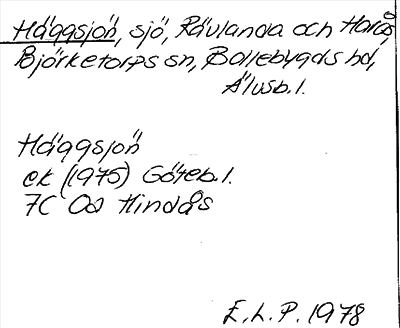 Häggsjön, sjö, Rävlanda och Harås,
Björketorps sn, Bollebygds hd,
Älvsb. l.
Häggsjön
ek (1975) Göteb. l.
7C 0a Hindås
E. L. P. 1978